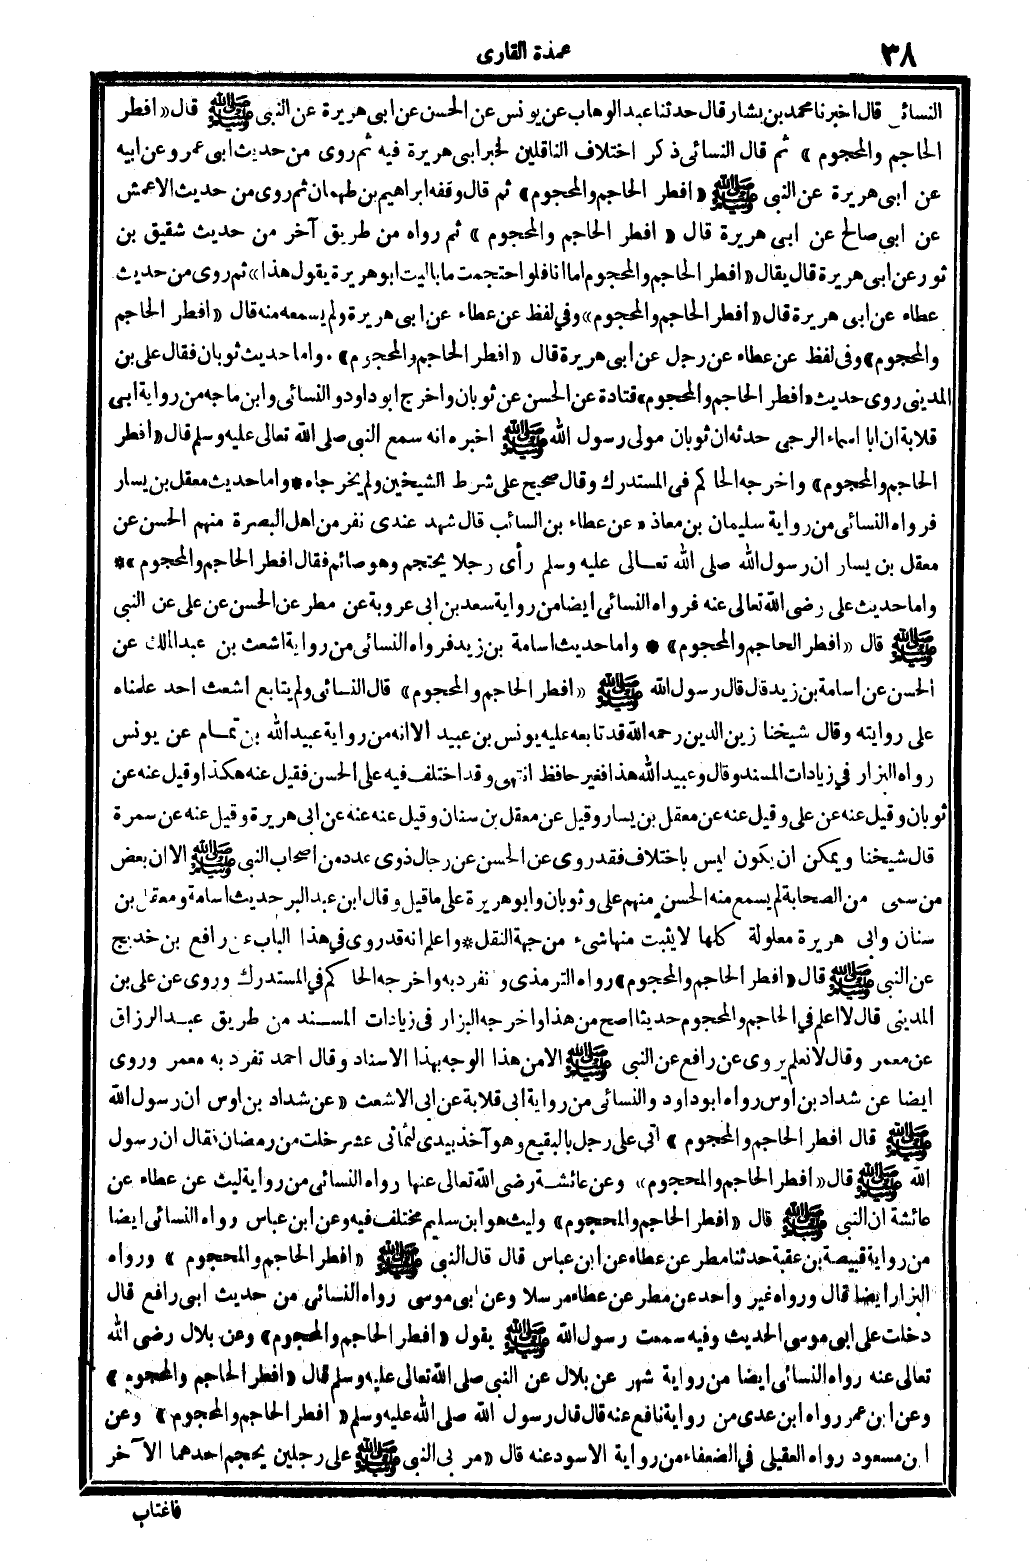 ٣٨
عمدة القارى
النسائى قال اخبرنا محمد بن بشار قال حدثنا عبد الوهاب عن يونس عن الحسن عن ابى هريرة عن النبى ﷺ قال «افطر
الحاجم والمحجوم» ثم قال النسائى ذكر اختلاف الناقلين لخبر ابى هريرة فيه ثم روى من حديث ابى عمرو عن ابيه
عن ابى هريرة عن النبى ﷺ «افطر الحاجم والمحجوم» ثم قال وقفه ابراهيم بن طهمان ثم روى من حديث الاعمش
عن ابى صالح عن ابى هريرة قال «افطر الحاجم والمحجوم» ثم رواه من طريق آخر من حديث شقيق بن
ثور عن ابى هريرة قال يقال «افطر الحاجم والمحجوم اما انا فلو احتجمت ما باليت ابو هريرة يقول هذا» ثم روى من حديث
عطاء عن ابى هريرة قال «افطر الحاجم والمحجوم» وفى لفظ عن عطاء عن ابى هريرة ولم يسمعه منه قال «افطر الحاجم
والمحجوم» وفى لفظ عن عطاء عن رجل عن ابى هريرة قال «افطر الحاجم والمحجوم» . واما حديث ثوبان فقال على بن
المدينى روى حديث «افطر الحاجم والمحجوم» قتادة عن الحسن عن ثوبان واخرج ابو داود والنسائى وابن ماجه من رواية ابى
قلابة ان ابا اسماء الرحبى حدثه ان ثوبان مولى رسول الله ﷺ اخبره انه سمع النبى صلى الله تعالى عليه وسلم قال «افطر
الحاجم والمحجوم» واخرجه الحاكم فى المستدرك وقال صحيح على شرط الشيخين ولم يخرجاه * واما حديث معقل بن يسار
فرواه النسائى من رواية سليمان بن معاذ «عن عطاء بن السائب قال شهد عندى نفر من اهل البصرة منهم الحسن عن
معقل بن يسار ان رسول الله صلى الله تعالى عليه وسلم رأى رجلا يحتجم وهو صائم فقال افطر الحاجم والمحجوم» *
واما حديث على رضى الله تعالى عنه فرواه النسائى ايضا من رواية سعد بن ابى عروبة عن مطر عن الحسن عن على عن النبى
ﷺ قال «افطر الحاجم والمحجوم» * واما حديث اسامة بن زيد فرواه النسائى من رواية اشعث بن عبد الملك عن
الحسن عن اسامة بن زيد قال قال رسول الله ﷺ «افطر الحاجم والمحجوم» قال النسائى ولم يتابع اشعث احد علمناه
على روايته وقال شيخنا زين الدين رحمه الله قد تابعه عليه يونس بن عبيد الا انه من رواية عبيد الله بن تمام عن يونس
رواه البزار فى زيادات المسند وقال وعبيد الله هذا فغير حافظ انتهى وقد اختلف فيه على الحسن فقيل عنه هكذا وقيل عنه عن
ثوبان وقيل عنه عن على وقيل عنه عن معقل بن يسار وقيل عن معقل بن سنان وقيل عنه عنه عن ابى هريرة وقيل عنه عن سمرة
قال شيخنا ويمكن ان يكون ليس باختلاف فقد روى عن الحسن عن رجال ذوى عدد من اصحاب النبى ﷺ الا ان بعض
من سمى من الصحابة لم يسمع منه الحسن منهم على وثوبان وابو هريرة على ما قيل وقال ابن عبد البر حديث اسامة ومعقل بن
سنان وابى هريرة معلولة كلها لا يثبت منها شىء من جهة النقل * واعلم انه قد روى فى هذا الباب عن رافع بن خديج
عن النبى ﷺ قال «افطر الحاجم والمحجوم» رواه الترمذى وتفرد به واخرجه الحاكم فى المستدرك وروى عن على بن
المدينى قال لا اعلم فى الحاجم والمحجوم حديثا اصح من هذا واخرجه البزار فى زيادات المسند من طريق عبد الرزاق
عن معمر وقال لا نعلم يروى عن رافع عن النبى ﷺ الا من هذا الوجه بهذا الاسناد وقال احمد تفرد به معمر وروى
ايضا عن شداد بن اوس رواه ابو داود والنسائى من رواية ابى قلابة عن ابى الاشعث «عن شداد بن اوس ان رسول الله
ﷺ قال افطر الحاجم والمحجوم» اتى على رجل بالبقيع وهو آخذ بيدى لثمانى عشر خلت من رمضان فقال ان رسول
الله ﷺ قال «افطر الحاجم والمحجوم» وعن عائشة رضى الله تعالى عنها رواه النسائى من رواية ليث عن عطاء عن
عائشة ان النبى ﷺ قال «افطر الحاجم والمحجوم» وليث هو ابن سليم مختلف فيه وعن ابن عباس رواه النسائى ايضا
من رواية قبيصة بن عقبة حدثنا مطر عن عطاء عن ابن عباس قال قال النبى ﷺ «افطر الحاجم والمحجوم» ورواه
البزار ايضا قال ورواه غير واحد عن مطر عن عطاء مرسلا وعن ابى موسى رواه النسائى من حديث ابى رافع قال
دخلت على ابى موسى الحديث وفيه سمعت رسول الله ﷺ يقول «افطر الحاجم والمحجوم» وعن بلال رضى الله
تعالى عنه رواه النسائى ايضا من رواية شهر عن بلال عن النبى صلى الله تعالى عليه وسلم قال «افطر الحاجم والمحجوم»
وعن ابن عمر رواه ابن عدى من رواية نافع عنه قال قال رسول الله صلى الله عليه وسلم «افطر الحاجم والمحجوم» وعن
ابن مسعود رواه العقيلى فى الضعفاء من رواية الاسود عنه قال «مر بى النبى ﷺ على رجلين يحجم احدهما الآخر
فاغتاب